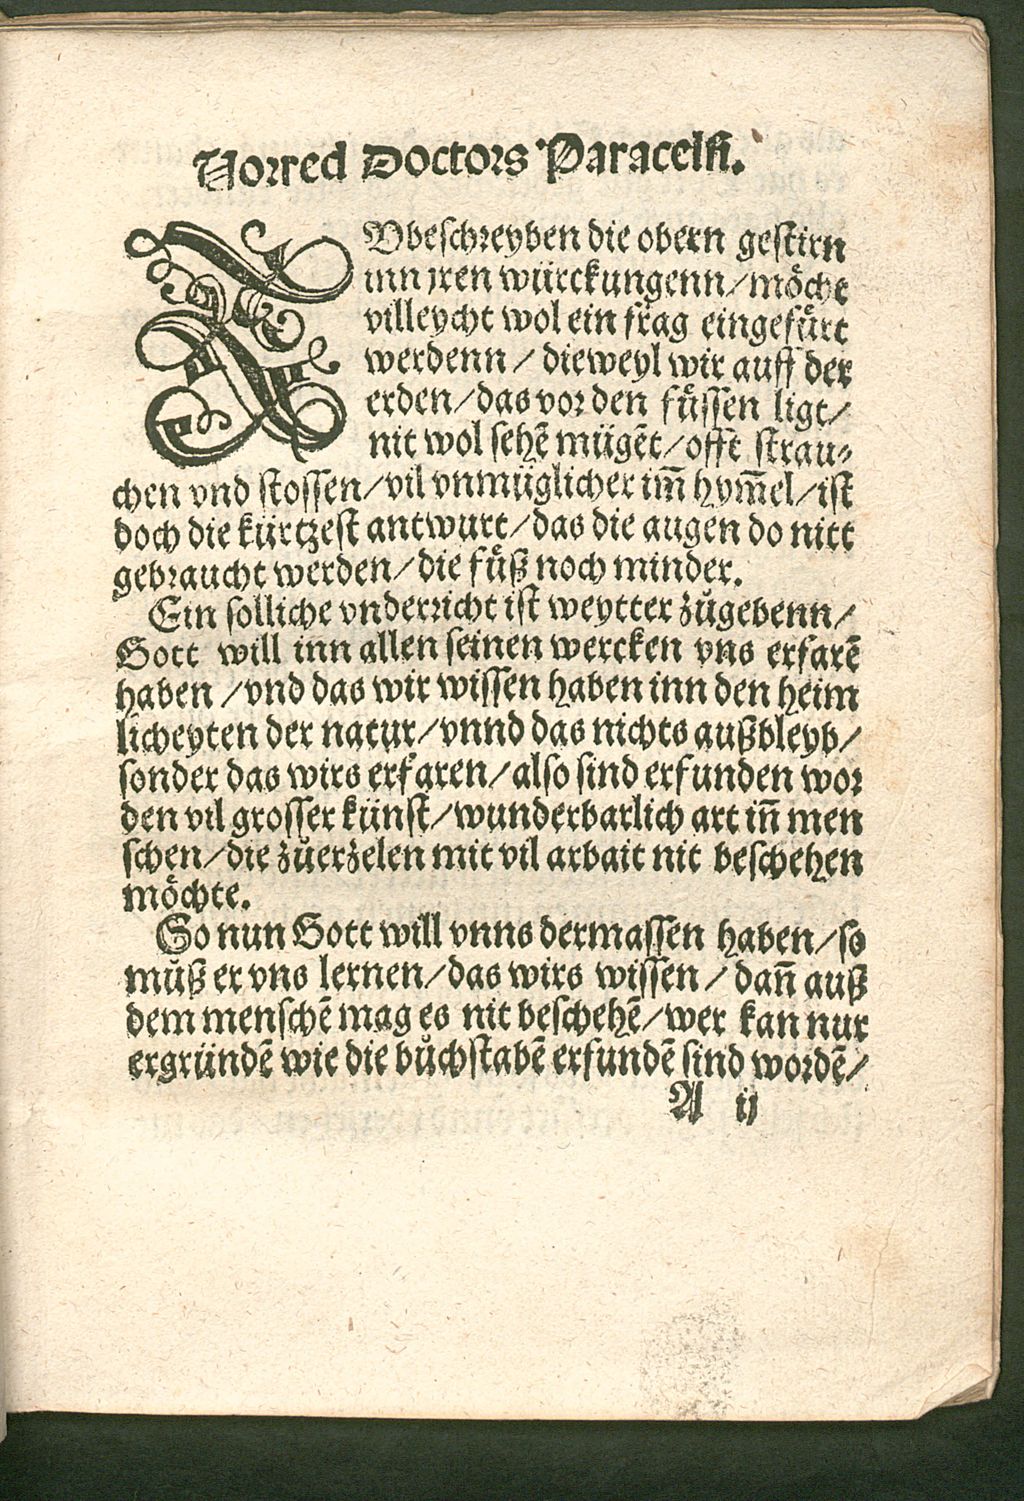 Vorred Doctors Paracelsi.
ZVbeschreyben die obern gestirn
inn jren würckungenn/möcht
villeycht wol ein frag eingefürt
werdenn/dieweyl wir auff der
erden/das vor den füssen ligt/
nit wol sehẽ mügẽt/offt strau⸗
chen vnd stossen/vil vnmüglicher im̃ hym̃el/ist
doch die kürtzest antwurt/das die augen do nitt
gebraucht werden/die füß noch minder.
Ein solliche vnderricht ist weytter zůgebenn/
Gott will inn allen seinen wercken vns erfarẽ
haben/vnd das wir wissen haben inn den heim
licheyten der natur/vnnd das nichts außbleyb/
sonder das wirs erfaren/also sind erfunden wor
den vil grosser künst/wunderbarlich art iñ men
schen/die zůerzelen mit vil arbait nit beschehen
möchte.
So nun Gott will vnns dermassen haben/so
můß er vns lernen/das wirs wissen/dañ auß
dem menschẽ mag es nit beschehẽ/wer kan nur
ergründẽ wie die bůchstabẽ erfundẽ sind wordẽ/
A ij